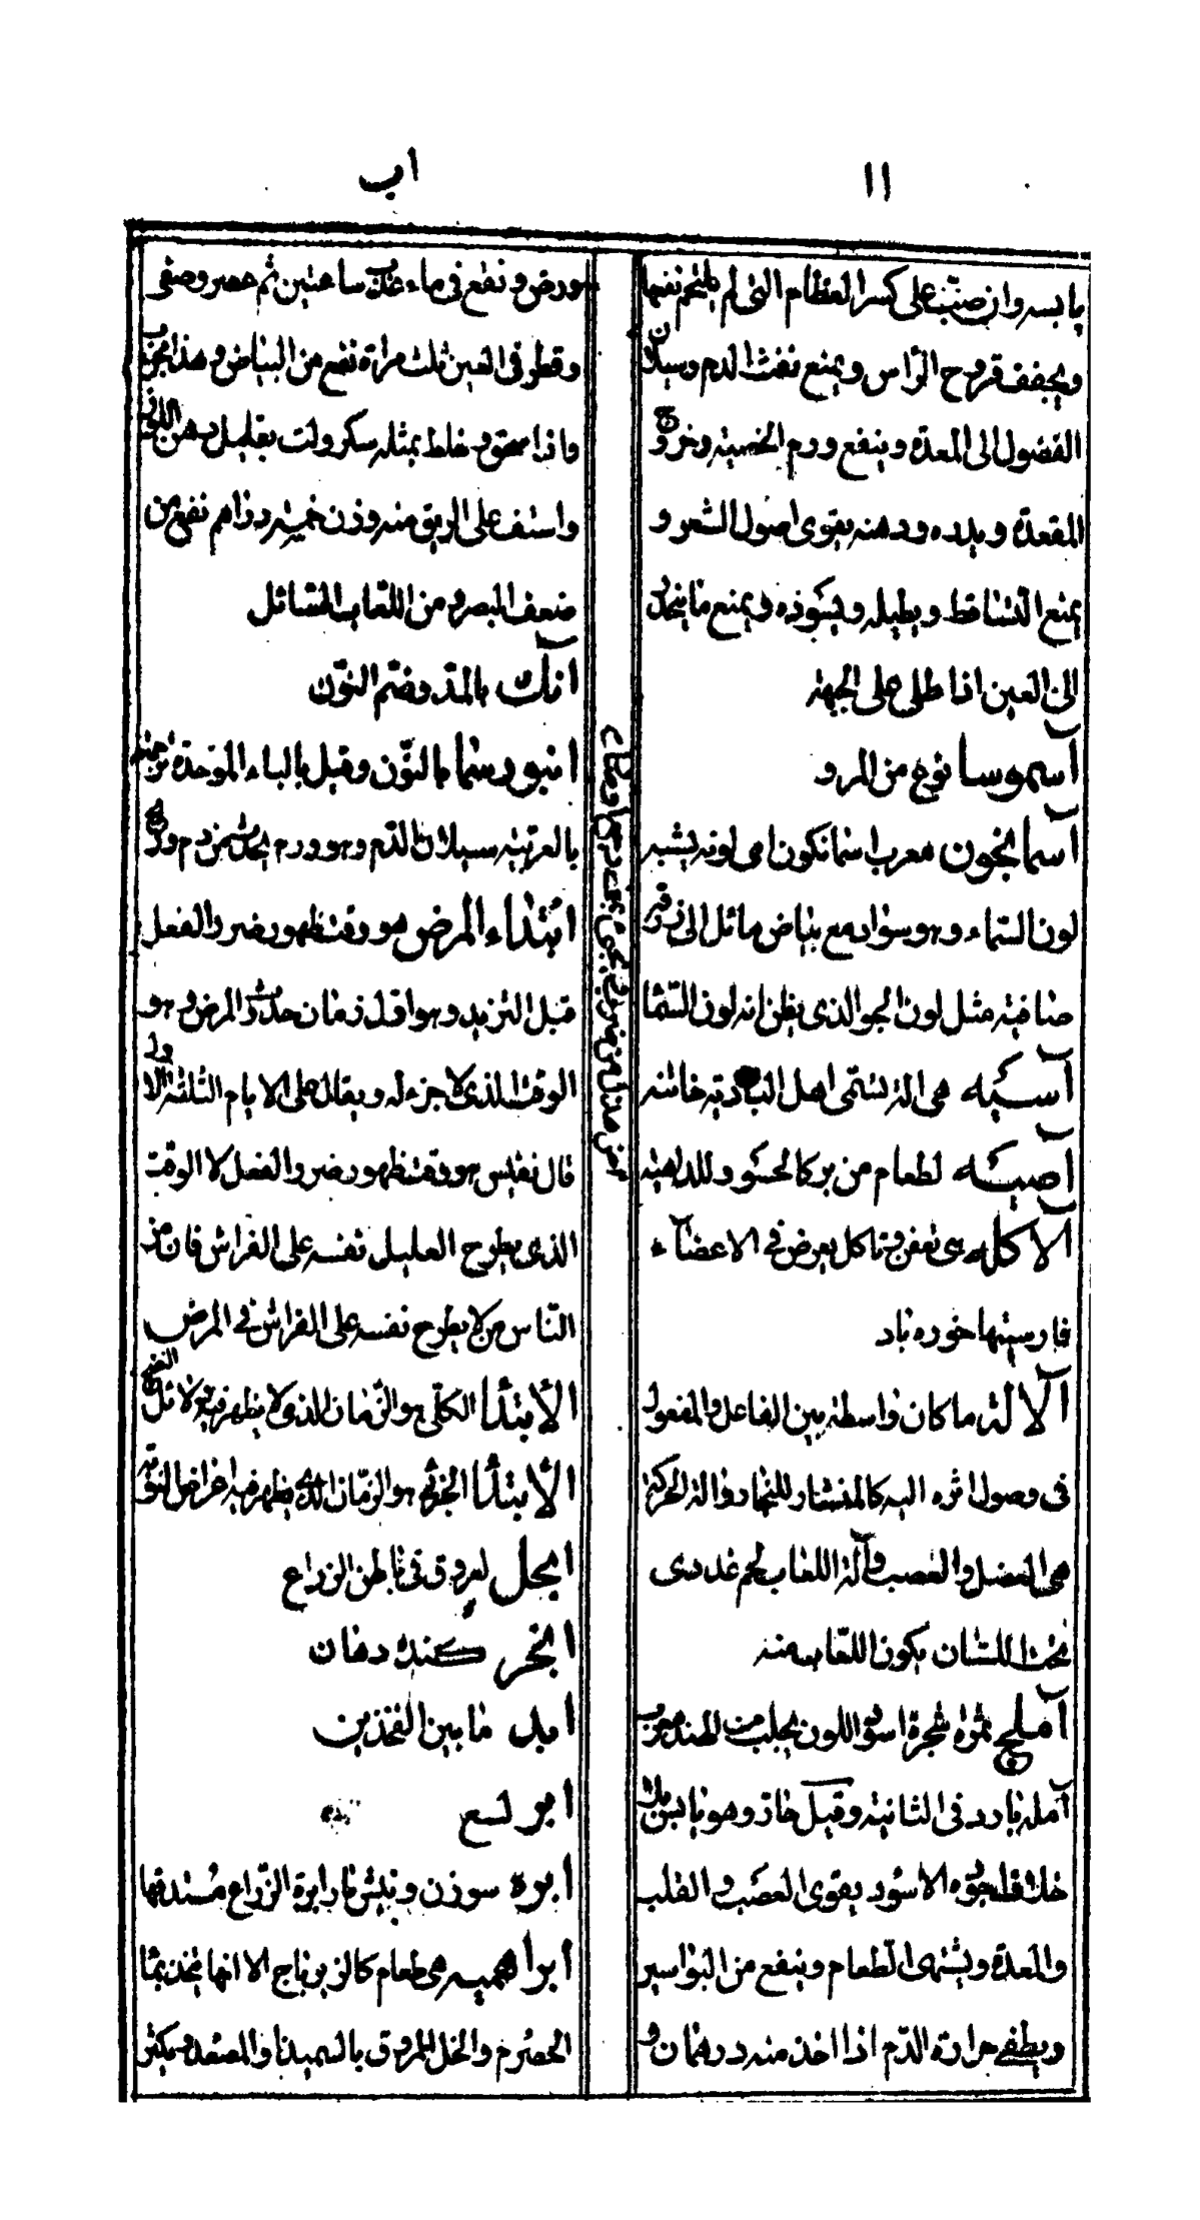 اا
اب
يابسه وان صبّ على كسر العظام التى لم يلتحم نفعها
ويجفف قروح الرّاس ويمنع نفث الدم وسيلان
الفضول الى المعدة وينفع ورم الخصيته وخروج
المقعدة و دهنه يقوى اصول الشعر و
يمنع التساقط ويطيله ويسوّده ويمنع ما ينجلب
الى العين اذا طلى على الجبهة
آسموسا نوع من المرو
آسمانجون معرب اسمانكون اى لونه يشبه
لون السّماء وهو سواد مع بياض مائل الى زرقة
صافية مثل لون الجو الذى يظن انه لون السّما
آسيه هى الة تسمّى اهل البادية
آصيه لطعام من بر كالحسو وللداهية
الآكله هى تعفن وتاكل يعرض فى الاعضآء
فارسيتها خوره باد
الآلة ما كان واسطة بين الفاعل والمفعول
فى وصول اثره اليه كالمنشار للنجار والة الحركة
هى العضل والعصب وآلة اللعاب لحم غددى
تحت اللسان يكون اللعاب منه
آملج ثمرة شجرة اسود اللون يجلب من الهند معرب
آمله بارد فى الثانية وقيل حار وهو يابس
الاسود يقوى العصب والقلب
والمعدة ويشهى الطعام وينفع من البواسير
ويطفى حرارة الدّم اذا اخذ منه درهمان و
ورض ونقع فى ماء عذب ساعتين ثم عصر وصفى
وقطر فى العين ثلث مراة نفع من البياض وهذا مجرب
واذا سحق وخلط بمثله سكر ولت بقليل دهن اللوز
واستف على الريق منه وزن خمسة دراهم نفع من
ضعف البصر ومن اللعاب السّائل
آنك بالمد وضم النوّن
انبورسما بالنوّن وقيل بالباء الموحدة ترجمته
بالعربية سيلان الدّم وهو ورم يحدث من دم وريح
ابتداء المرض هو وقت ظهور ضرر الفعل
قبل التزيد وهو اول زمان حدث المرض وهو
الوقت الذى لا جزء له ويقال على الايام الثلثة الاولى
قال نفيس هو وقت ظهور ضرر الفعل لا الوقت
الذى يطرح العليل نفسه على الفراش فان من
النّاس من لا يطرح نفسه على الفراش فى المرض
الابتدأ الكلّى هو الزّمان الذى لا يظهر فيه دلائل النضج
الابتدأ الجزئى هو الزمان الذى يظهر فيه اعراض النوبة
ابجل لعروق فى باطن الزراع
ابخر كنده دهان
ابد ما بين الفخذين
ابو لسع
ابره سوزن ونيش مار ابرة الزّراع مستدقها
ابراهميه هى طعام كالزيرباج الا انها يتخذ بماء
الحصرم والخل المروق بالسميدنا والمصعد ويكثر